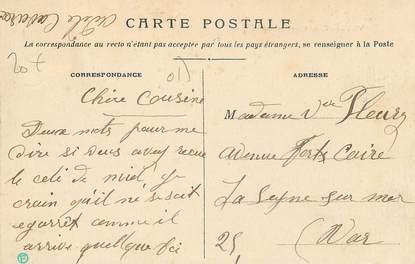 CARTE POSTALE
La correspondance au recto n'étant pas acceptée par tous les pays étrangers, se renseigner à la Poste
CORRESPONDANCE
ADRESSE
Chère Cousine
Deux mots pour me
dire si vous avez recue
le coli de miel je
crain qu'il ne se soit
egarrét comme il
arrive quelque foi
Madame Vve Fleury
Avenue Forts Caire
La Seyne sur mer
25 (Var)